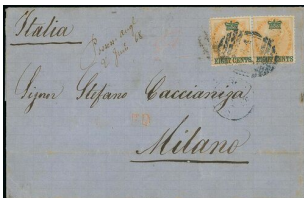 Italia
EIGHT CENTS EIGHT CENTS
Signor Stefano Caccianiga
Milano